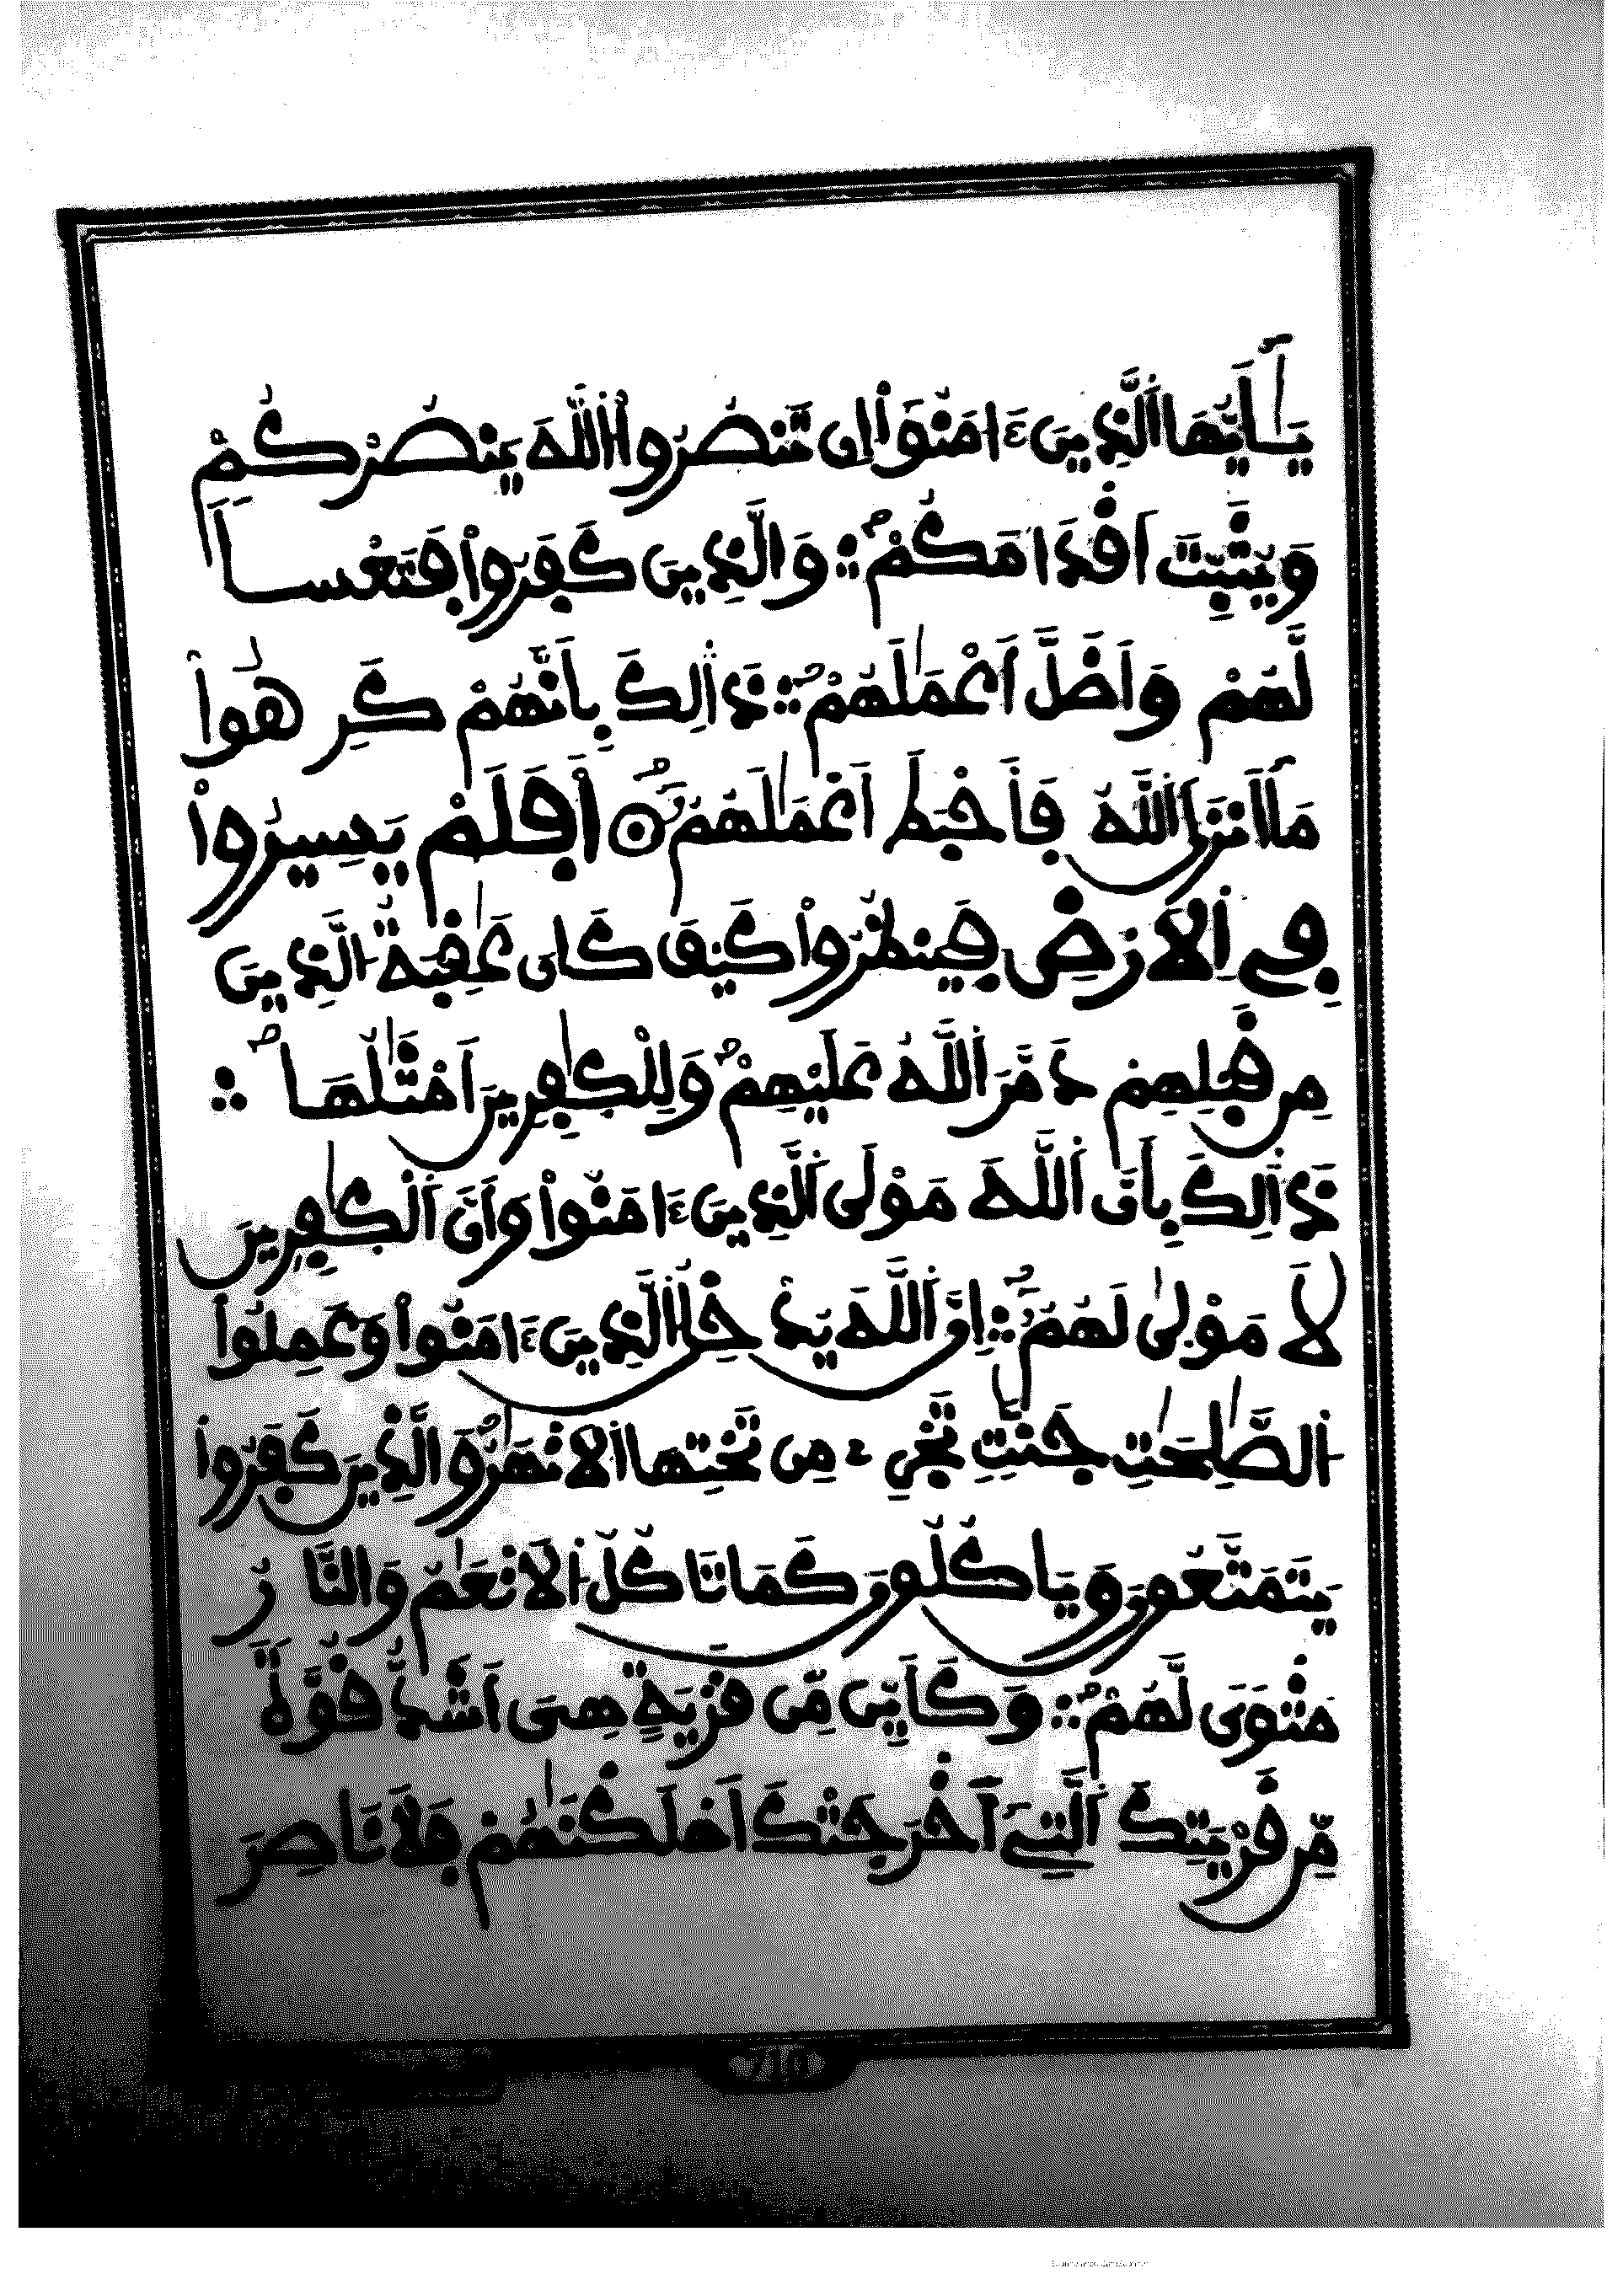 يَٰٓأَيُّهَا اَ۬لذِينَ ءَامَنُوٓاْ إِن تَنصُرُواْ اُ۬للَّهَ يَنصُرْكُمْ
وَيُثَبِّتَ اَقْدَامَكُمْ وَالذِينَ كَفَرُواْ فَتَعْساٗ
لَّهُمْ وَأَضَلَّ أَعْمَٰلَهُمْ ذَٰلِكَ بِأَنَّهُمْ كَرِهُواْ
مَآ أَنزَلَ اَ۬للَّهُ فَأَحْبَطَ أَعْمَٰلَهُمْ أَفَلَمْ يَسِيرُواْ
فِي اِ۬لَارْضِ فَيَنظُرُواْ كَيْفَ كَانَ عَٰقِبَةُ اُ۬لذِينَ
مِن قَبْلِهِمْ دَمَّرَ اَ۬للَّهُ عَلَيْهِمْ وَلِلْكَٰفِرِينَ أَمْثَٰلُهَا
ذَٰلِكَ بِأَنَّ اَ۬للَّهَ مَوْلَى اَ۬لذِينَ ءَامَنُواْ وَأَنَّ اَ۬لْكَٰفِرِينَ
لَا مَوْلَىٰ لَهُمُ إِنَّ اَ۬للَّهَ يُدْخِلُ اُ۬لذِينَ ءَامَنُواْ وَعَمِلُواْ
اُ۬لصَّٰلِحَٰتِ جَنَّٰتٖ تَجْرِے مِن تَحْتِهَا اَ۬لَانْهَٰرُ وَالذِينَ كَفَرُواْ
يَتَمَتَّعُونَ وَيَاكُلُونَ كَمَا تَاكُلُ اُ۬لَانْعَٰمُ وَالنَّارُ
مَثْويٗ لَّهُمْ وَكَأَيِّن مِّن قَرْيَةٍ هِيَ أَشَدُّ قُوَّةٗ
مِّن قَرْيَتِكَ اَ۬لتِےٓ أَخْرَجَتْكَ أَهْلَكْنَٰهُمْ فَلَا نَاصِرَ
710